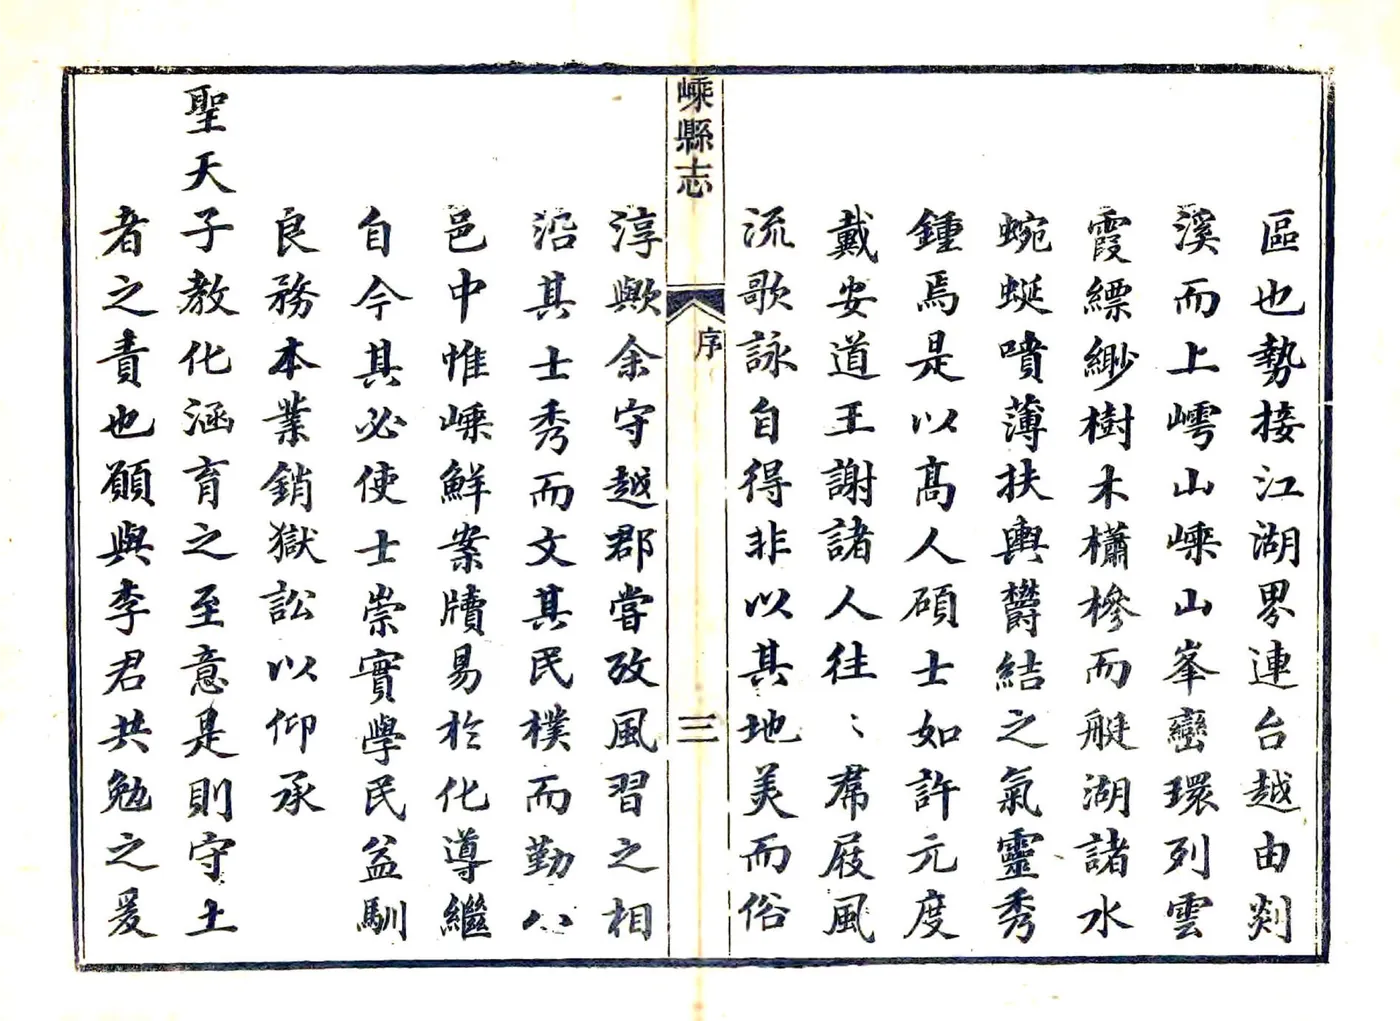 區也勢接江湖界連台越由剡
溪而上嶀山嵊山峯巒環列雲
霞縹緲樹木櫹槮而艇湖諸水
蜿蜒噴薄扶輿欝結之氣靈秀
鍾焉是以髙人碩士如許元度
戴安道王謝諸人往〻裙屐風
流歌詠自得非以其地美而俗
嵊縣志
序
三
淳歟余守越郡嘗攷風習之相
沿其士秀而文其民樸而勤八
邑中惟嵊鮮案牘易於化導繼
自今其必使士崇實學民益馴
良務本業銷獄訟以仰承
聖天子教化涵育之至意是則守土
者之責也願與李君共勉之爰